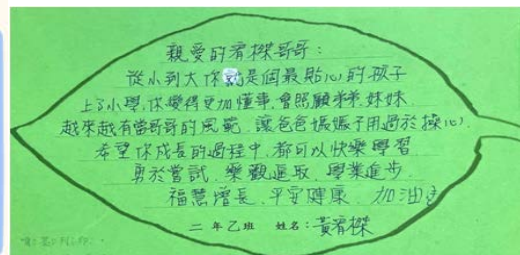 親愛的宥榤哥哥：
從小到大你就是個最貼心的孩子
上了小學,你變得更加懂事,會照顧弟弟.妹妹.
越來越有當哥哥的風範.讓爸爸媽媽不用過於操心
希望你成長的過程中,都可以快樂學習.
勇於嘗試.樂觀進取.學業進步.
福慧增長.平安健康.加油
二年乙班 姓名：黃宥榤